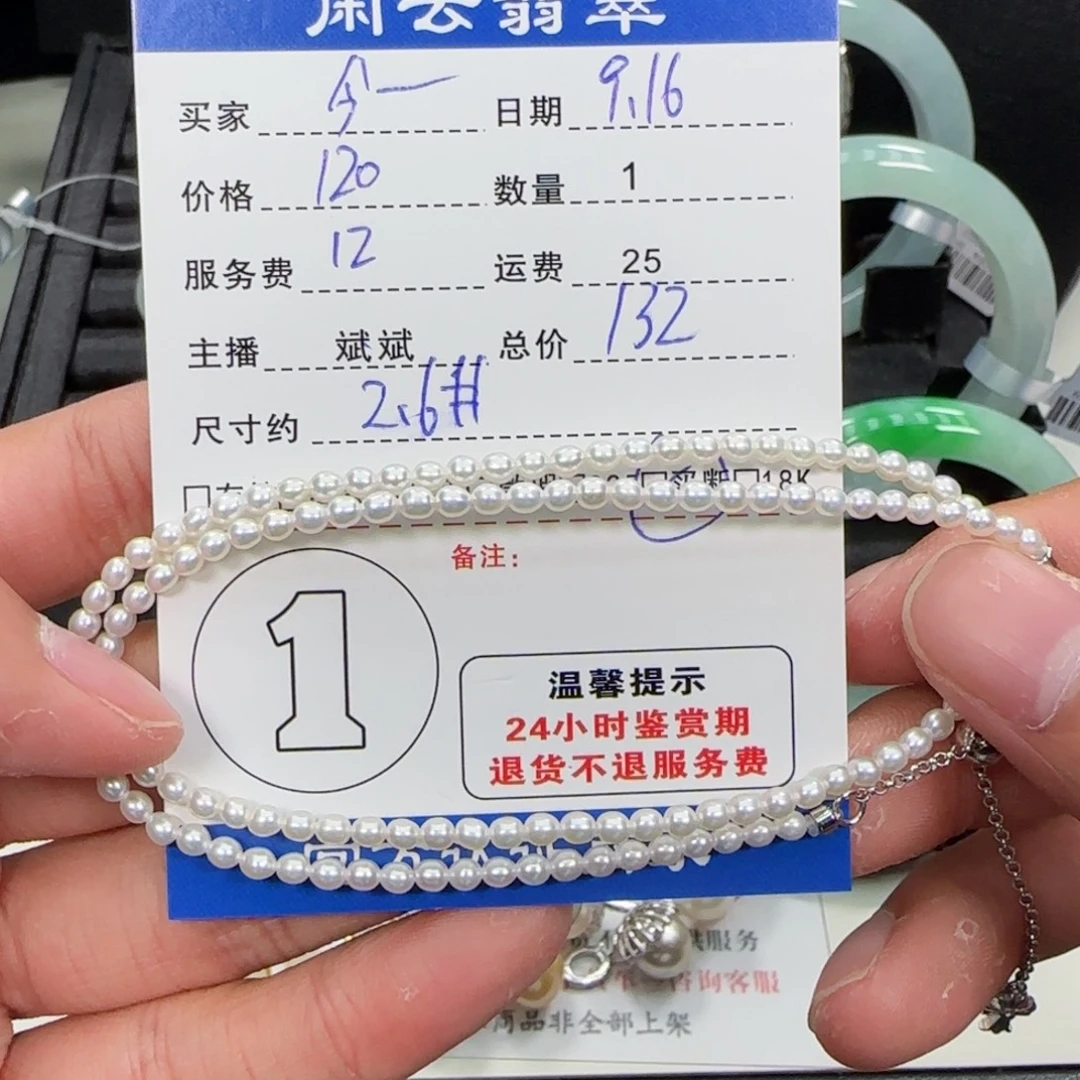 闲云翡翠
买家 今一 日期 9.16
价格 120 数量 1
服务费 12 运费 25
主播 斌斌 总价 132
尺寸约 2.6#
□ □ □18K
备注:
1
温馨提示
24小时鉴赏期
退货不退服务费
服务
咨询客服
商品非全部上架